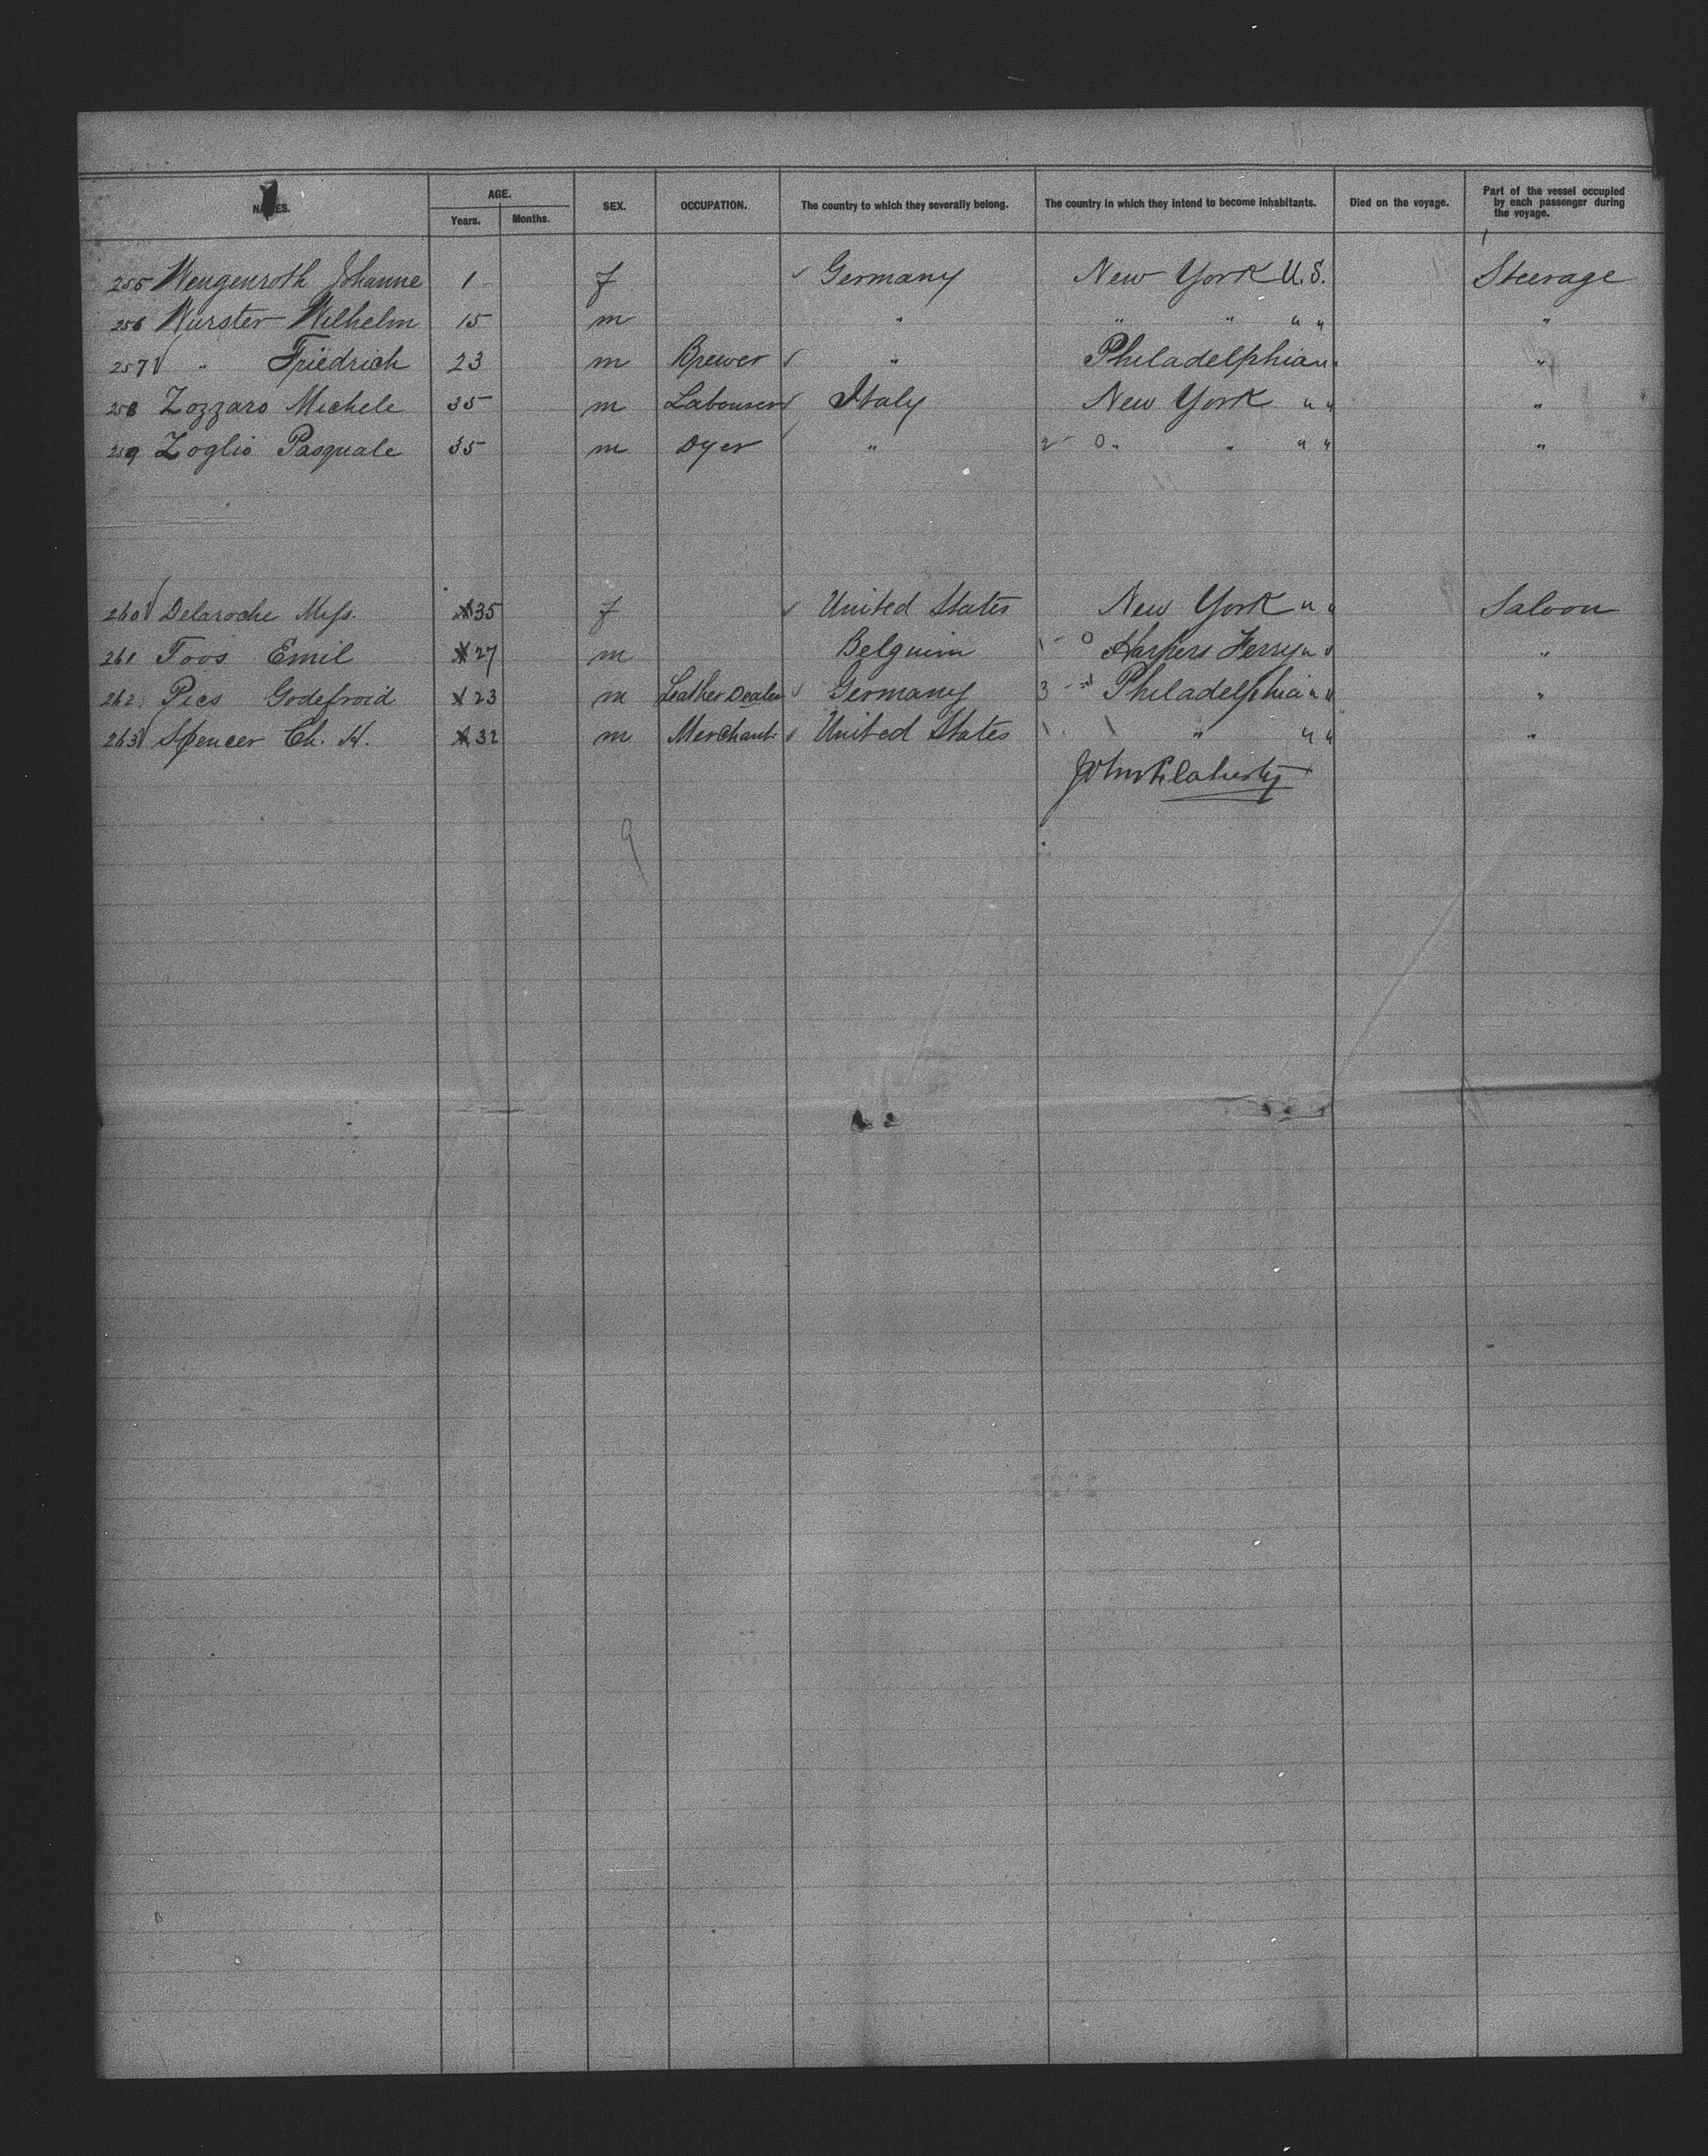 NAMES. AGE. SEX. OCCUPATION. The country to which they severally belong. The country in which they intend to become inhabitants. Died on the voyage. Part of the vessel occupied by each passenger during the voyage.
Years. Months.
255 Wengenroth Johanne 1 f Germany New York U.S. Steerage
256 Wurster Wilhelm 15 m " " " " " "
257 " Friedrich 23 m Brewer " Philadelphia " "
258 Zozzaro Michele 35 m Labourer Italy New York " " "
259 Zoglio Pasquale 35 m Dyer " 2 - 0 " " " " "
260 Delaroche Miss. 35 f United States New York " " Saloon
261 Toos Emil 27 m Belguim 1 - 0 Harpers Ferry " " "
262 Pies Godefroid 23 m Leather Dealer Germany 3 - Philadelphia " " "
263 Spencer Ch. H. 32 m Merchant United States 1 " " " "
9